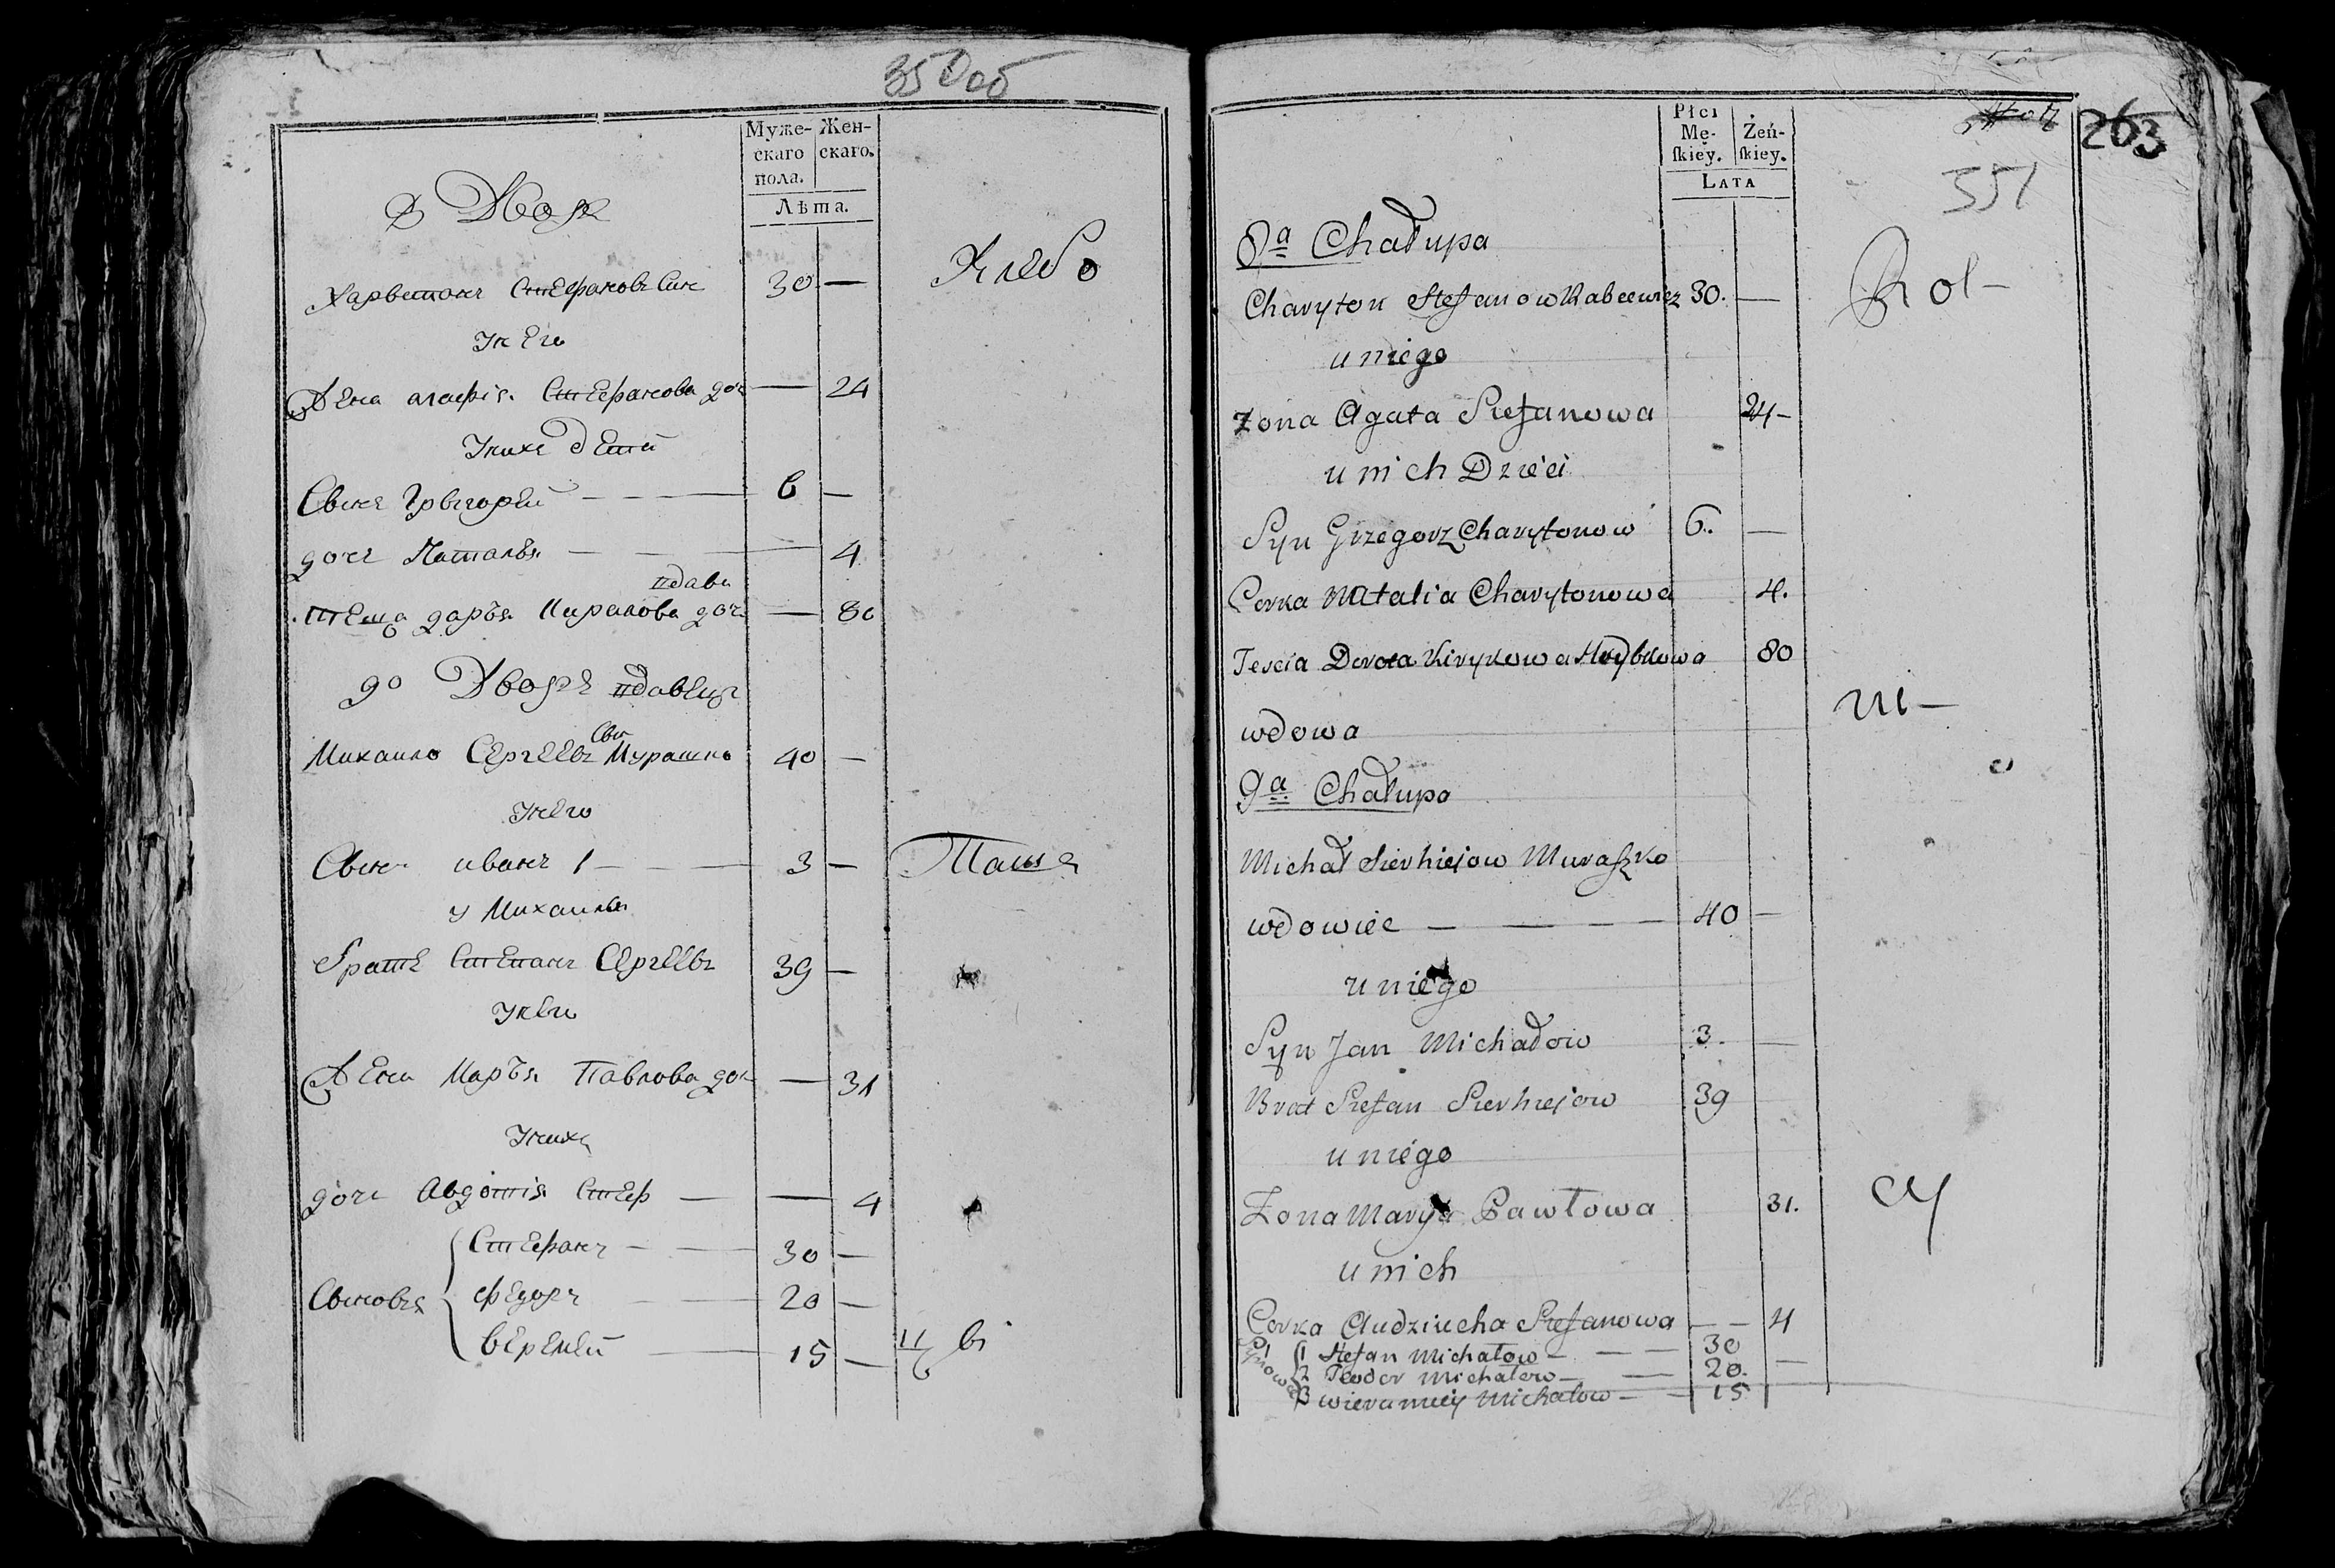 350 об
Муже-
скаго
пола.
Жен-
скаго.
Лѣта.
8 Дворъ
Харытонъ Стефановъ Сынъ 30 —
У нЕго
ЖЕна агафія Стефанова доч — 24
У нихъ дЕти
Сынъ Грыгорей — 6 —
дочъ Наталья — 4
вдава
тЕща дарья Кирыкова доч — 80
9о Дворъ вдавЕцъ
Сын
Михаило СЕргЕЕвъ Мурашко 40 —
У нЕго
Сынъ иванъ 1 — 3 —
у Михаилы
братъ СтЕпанъ СЕргЕЕвъ 39 —
У нЕго
ЖЕна Марья Павлова доч — 31
У нихъ
дочъ Авдотія СтЕф — 4
СтЕфанъ — 30 —
Сыновья Федоръ — 20 —
ВЕрЕмЕй — 15 —
263
351
Płci
Mę-
ſkiey.
Żeń-
ſkiey.
Lata
8a Chałupa
Charyton Stefanow Rabcewicz 30. —
u niego
Zona Agata Stefanowa 24 —
u nich Dzieci
Syn Grzegorz Charytonow 6. —
Corka Natalia Charytonowa 4.
Tescia Dorota Kirykowa 80
wdowa
9a Chałupa
Michał Sierhiejow Muraszko
wdowiec — 40 —
u niego
Syn Jan Michałow 3. —
Brat Stefan Sierhiejow 39
u niego
Zona Marya Pawłowa 31.
u nich
Corka Audziucha Stefanowa — 4
Synowie 1 Stefan Michałow — 30
2 Teodor Michałow — 20. —
3 Wieramiey Michałow — 15